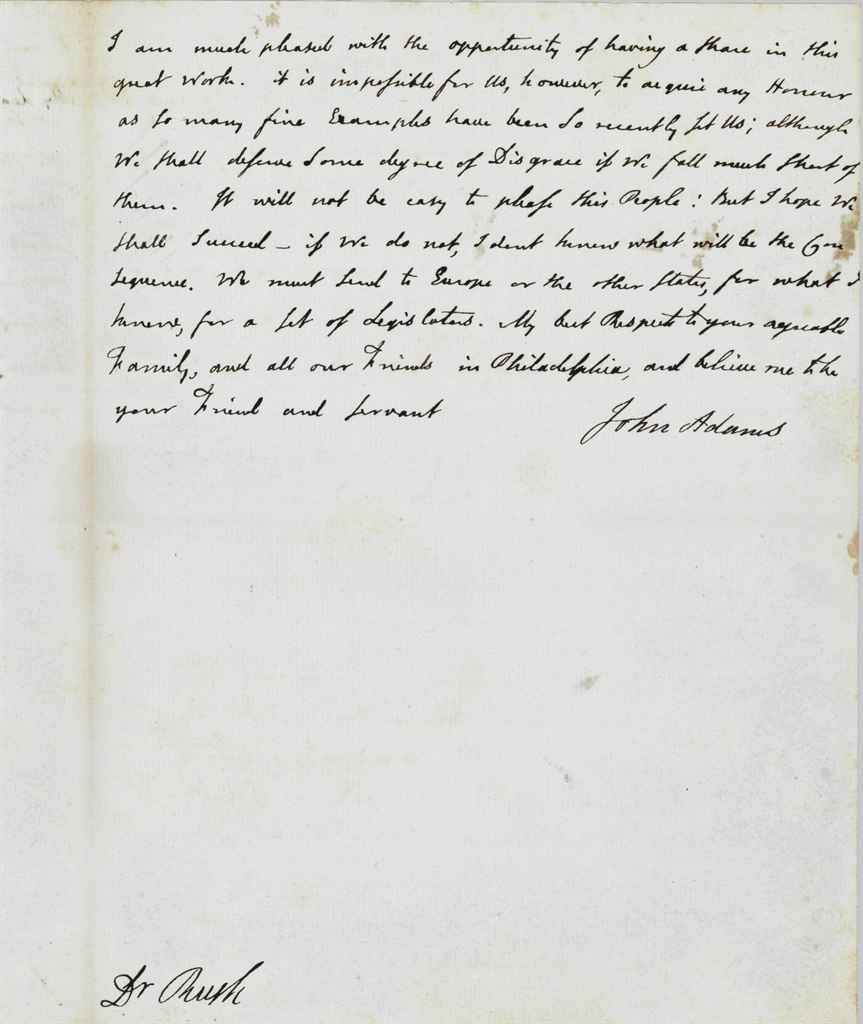 I am much pleased with the opportunity of having a Share in this
great Work. it is impossible for Us, however, to acquire any Honour
as so many fine Examples have been so recently set Us; although
We shall deserve some degree of Disgrace if We fall much short of
them. It will not be easy to please this People: But I hope We
shall Succeed — if We do not, I dont know what will be the Con
sequence. We must send to Europe or the other States, for what I
know, for a set of Legislators. My best Respects to your agreeable
Family, and all our Friends in Philadelphia, and believe me to be
your Friend and servant
John Adams
Dr Rush